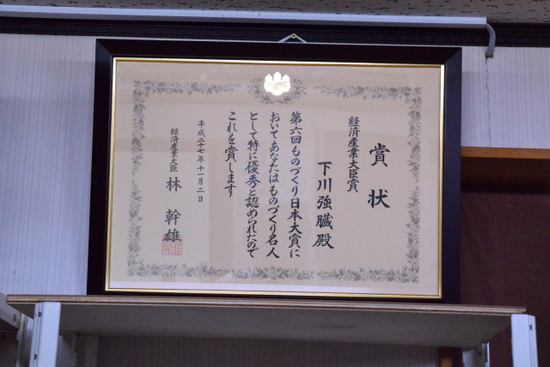 賞状
経済産業大臣賞
下川強臓殿
第六回ものづくり日本大賞に
おいてあなたはものづくり名人
として特に優秀と認められたので
これを賞します
平成二十七年十一月二日
経済産業大臣 林幹雄